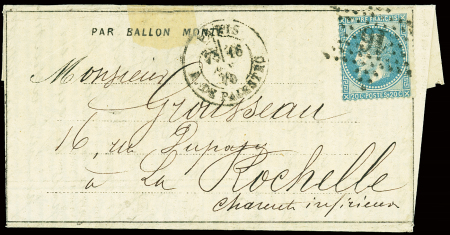 PAR BALLON MONTÉ
PARIS
16
70
R. DE PALESTRO
EMPIRE FRANÇAIS
20 C POSTES 20 C
Monsieur
Grousseau
16, rue Dupaty
à La Rochelle
Charente inférieure